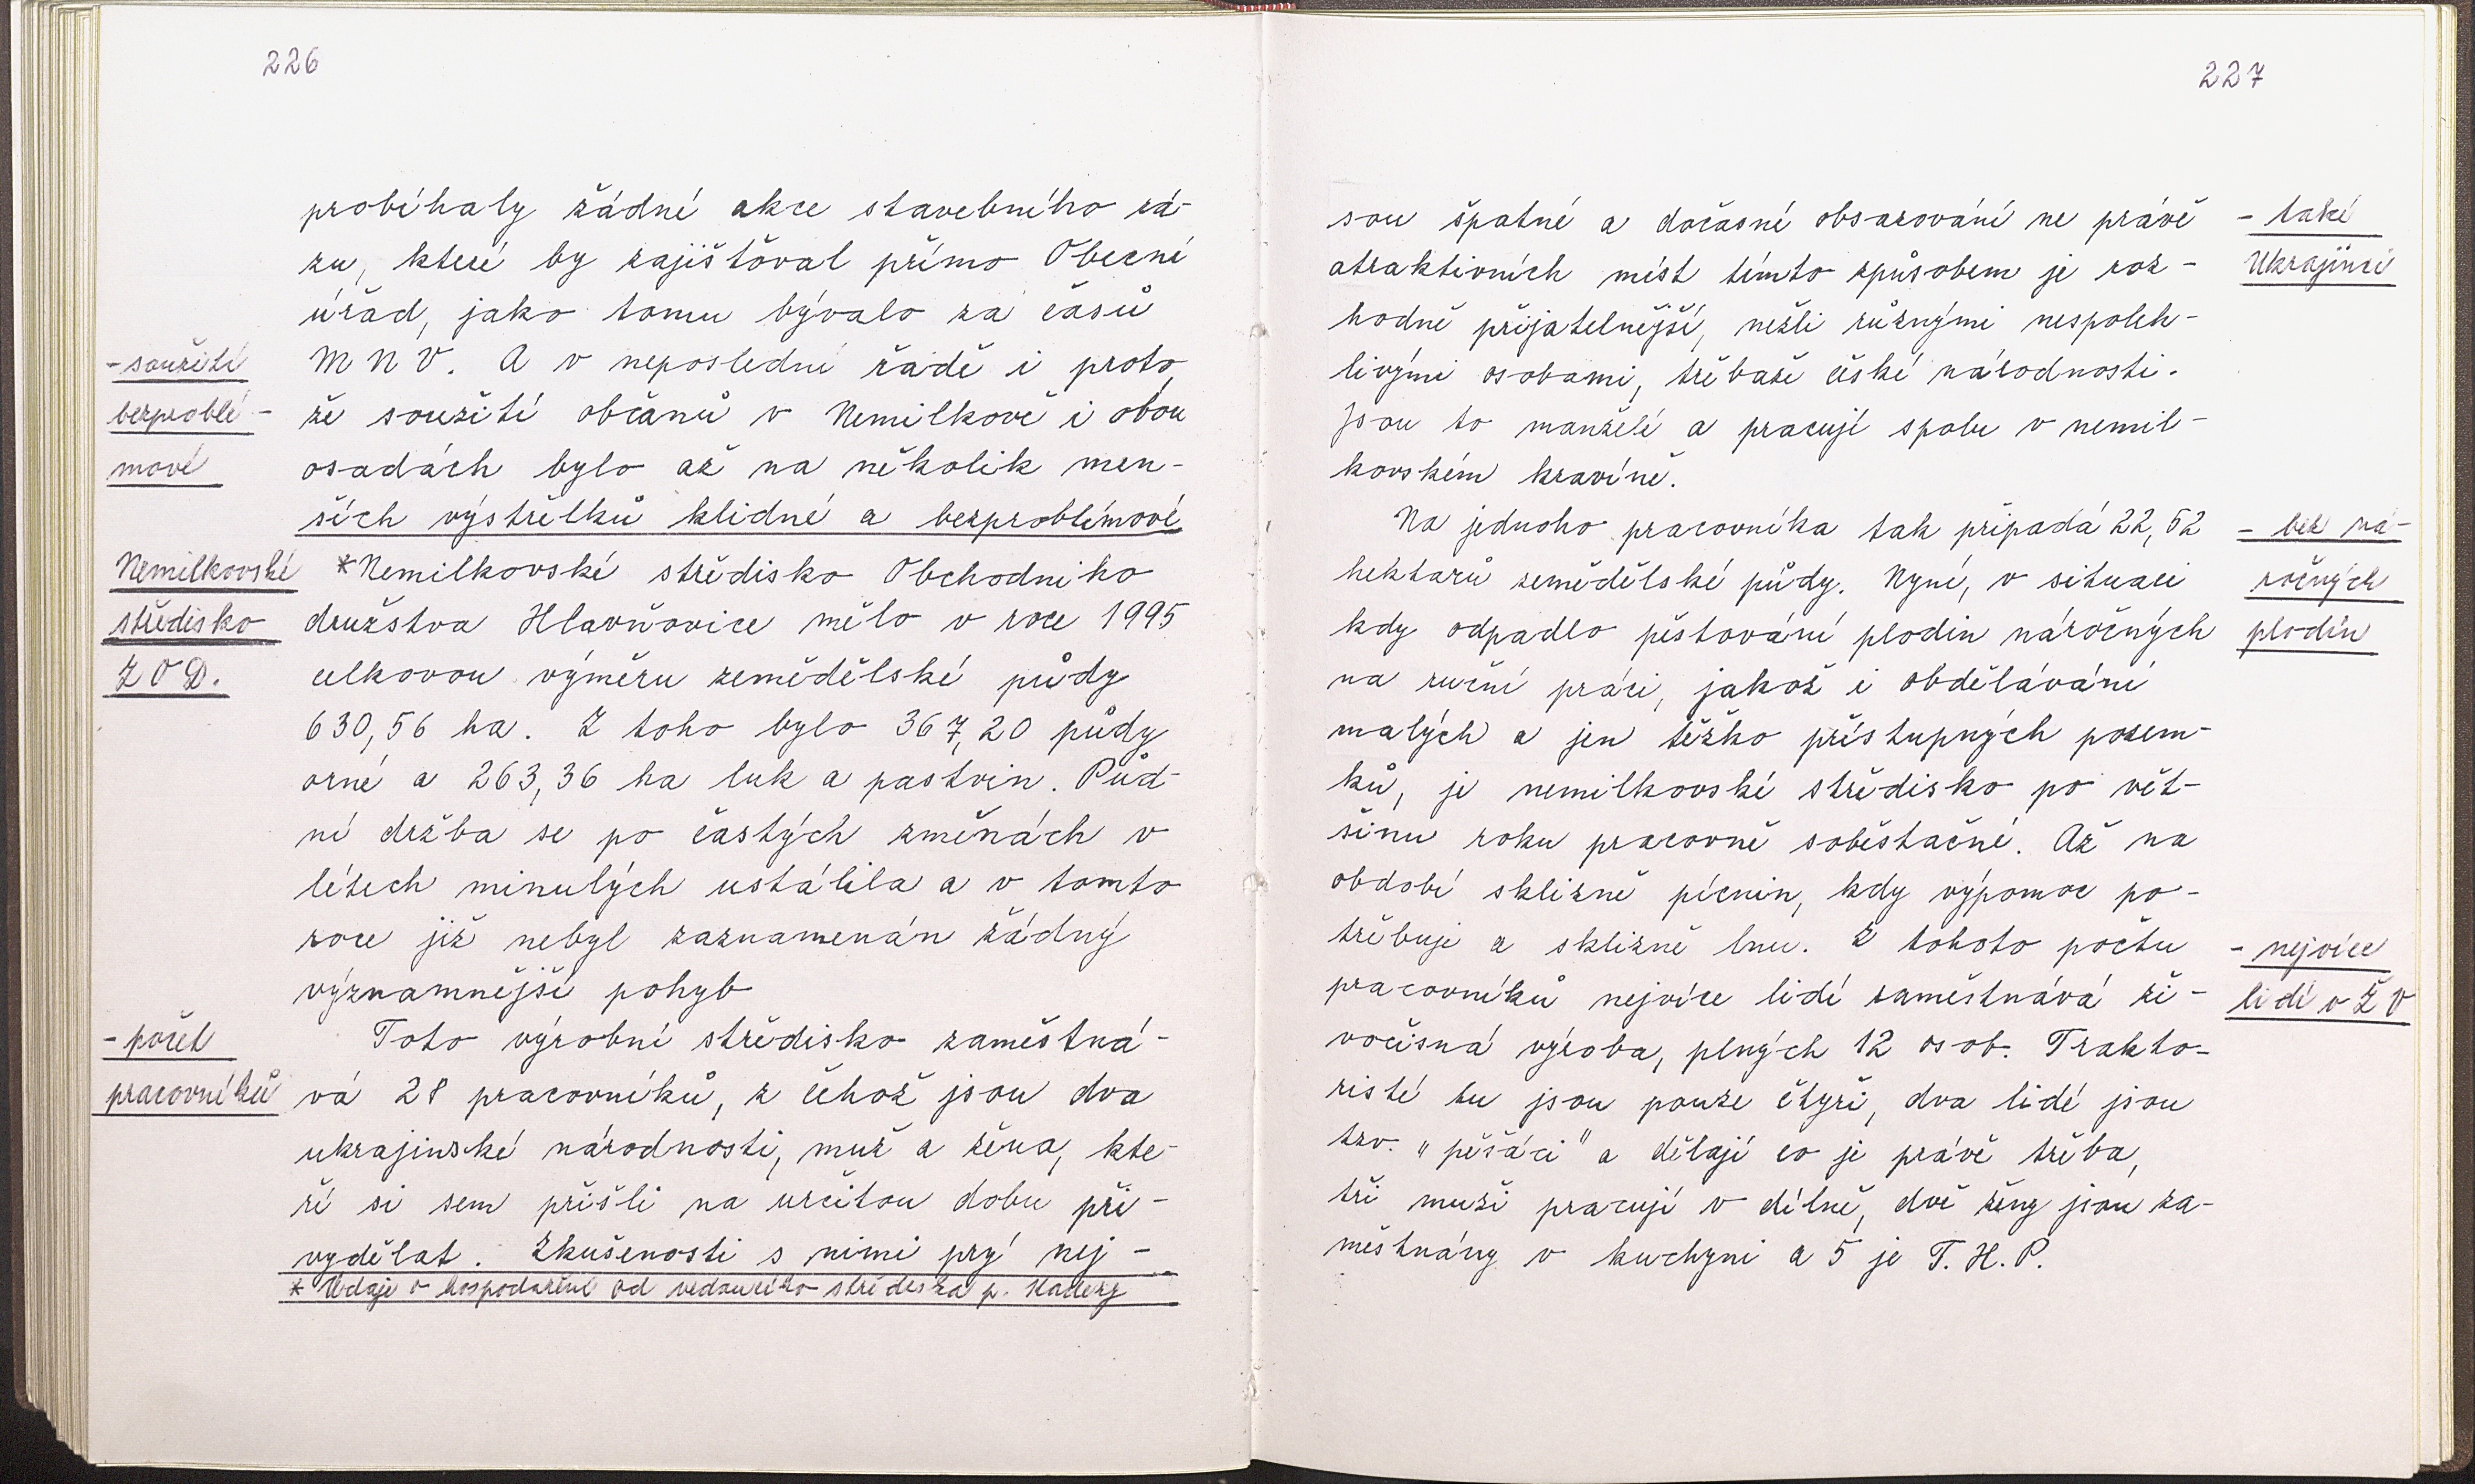 226
probíhaly žádné akce stavebního rá-
zu, které by zajišťoval přímo Obecní
úřad, jako tomu bývalo za časů
- soužití
M N V. A v neposlední řadě i proto,
bezproblé-
že soužití občanů v Nemilkově i obou
mové
osadách bylo až na několik men-
ších výstřelků klidné a bezproblémové
Nemilkovské
*Nemilkovské středisko Obchodního
středisko
družstva Hlavňovice mělo v roce 1995
Z O D.
celkovou výměru zemědělské půdy
630,56 ha. Z toho bylo 367,20 půdy
orné a 263,36 ha luk a pastvin. Půd-
ní držba se po častých změnách v
létech minulých ustálila a v tomto
roce již nebyl zaznamenán žádný
významnější pohyb
- počet
Toto výrobní středisko zaměstná-
pracovníků
vá 28 pracovníků, z čehož jsou dva
ukrajinské národnosti, muž a žena, kte-
ří si sem přišli na určitou dobu při-
vydělat. Zkušenosti s nimi prý nej-
* Údaje o hospodaření od vedoucího střediska p.
227
sou špatné a dočasné obsazování ne právě
- také
atraktivních míst tímto způsobem je roz-
Ukrajinci
hodně přijatelnější, nežli různými nespoleh-
livými osobami, třebaže české národnosti.
Jsou to manželé a pracují spolu v nemil-
kovském kravíně.
Na jednoho pracovníka tak připadá 22,52
- bez ná-
hektarů zemědělské půdy. Nyní, v situaci
ročných
kdy odpadlo pěstování plodin náročných
plodin
na ruční práci, jakož i obdělávání
malých a jen těžko přístupných pozem-
ků, je nemilkovské středisko po vět-
šinu roku pracovně soběstačné. Až na
období sklizně pícnin, kdy výpomoc po-
třebuje a sklizně lnu. Z tohoto počtu
- nejvíce
pracovníků nejvíce lidí zaměstnává ži-
lidí v Ž V
vočišná výroba, plných 12 osob. Trakto-
risté tu jsou pouze čtyři, dva lidé jsou
tzv. "pěšáci" a dělají co je právě třeba,
tři muži pracují v dílně, dvě ženy jsou za-
městnány v kuchyni a 5 je T. H. P.